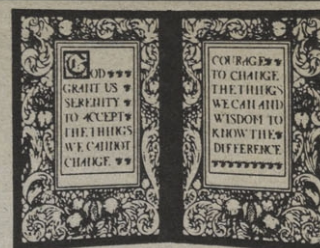 GOD
GRANT US
SERENITY
TO ACCEPT
THE THINGS
WE CANNOT
CHANGE
COURAGE
TO CHANGE
THE THINGS
WE CAN AND
WISDOM TO
KNOW THE
DIFFERENCE